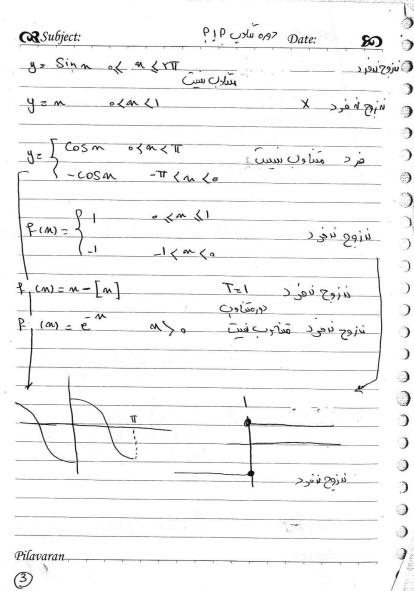 Subject: دوره تناوب P.I.P Date:
y = Sin x 0 ≤ x ≤ ۲π نه زوج نه فرد
متناوب نیست
y = x 0 < x < 1 x نه زوج نه فرد
y = { cos x 0 < x < π فرد متناوب نیست
-cos x -π < x < 0
f(x) = { 1 0 ≤ x ≤ 1 نه زوج نه فرد
-1 -1 < x < 0
f(x) = x - [x] T = 1 نه زوج نه فرد
دوره تناوب
f(x) = e^-x x > 0 نه زوج نه فرد متناوب نیست
π 1
نه زوج نه فرد
Pilavaran
3